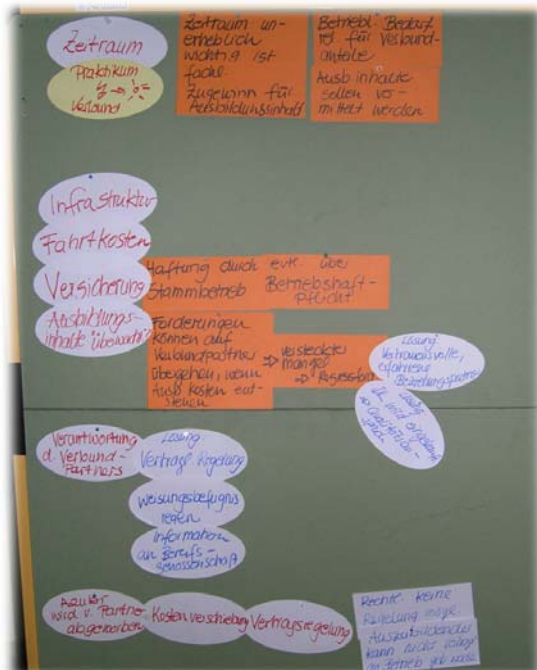 Zeitraum
Praktikum
Verbund
Zeitraum un-
erheblich
wichtig ist
fachl.
Zugewinn für
Ausbildungsinhalt
Betriebl. Bedarf
für Verbund-
anteile
Ausb. inhalte
sollen ver-
mittelt werden
Infrastruktur
Fahrtkosten
Versicherung
Ausbildungs-
inhalte "überwacht"?
Haftung durch evtl. über
Stammbetrieb Betriebshaft-
pflicht
Forderungen
können auf
Verbundpartner
übergehen, wenn
Ausb kosten ent-
stehen
⇒ versteckter
mangel
Lösung:
Vertrauensvolle,
erfahrene
Verantwortung
d. Verbund-
Partners
Lösung:
Vertragl. Regelung
Weisungsbefugnis
regeln
Information
an Berufs-
genossenschaft
Azubi
wird v. Partner
abgeworben
Kostenverschiebung
Vertragsregelung
Rechtl. keine
Regelung mögl.
Auszubildender
kann nicht